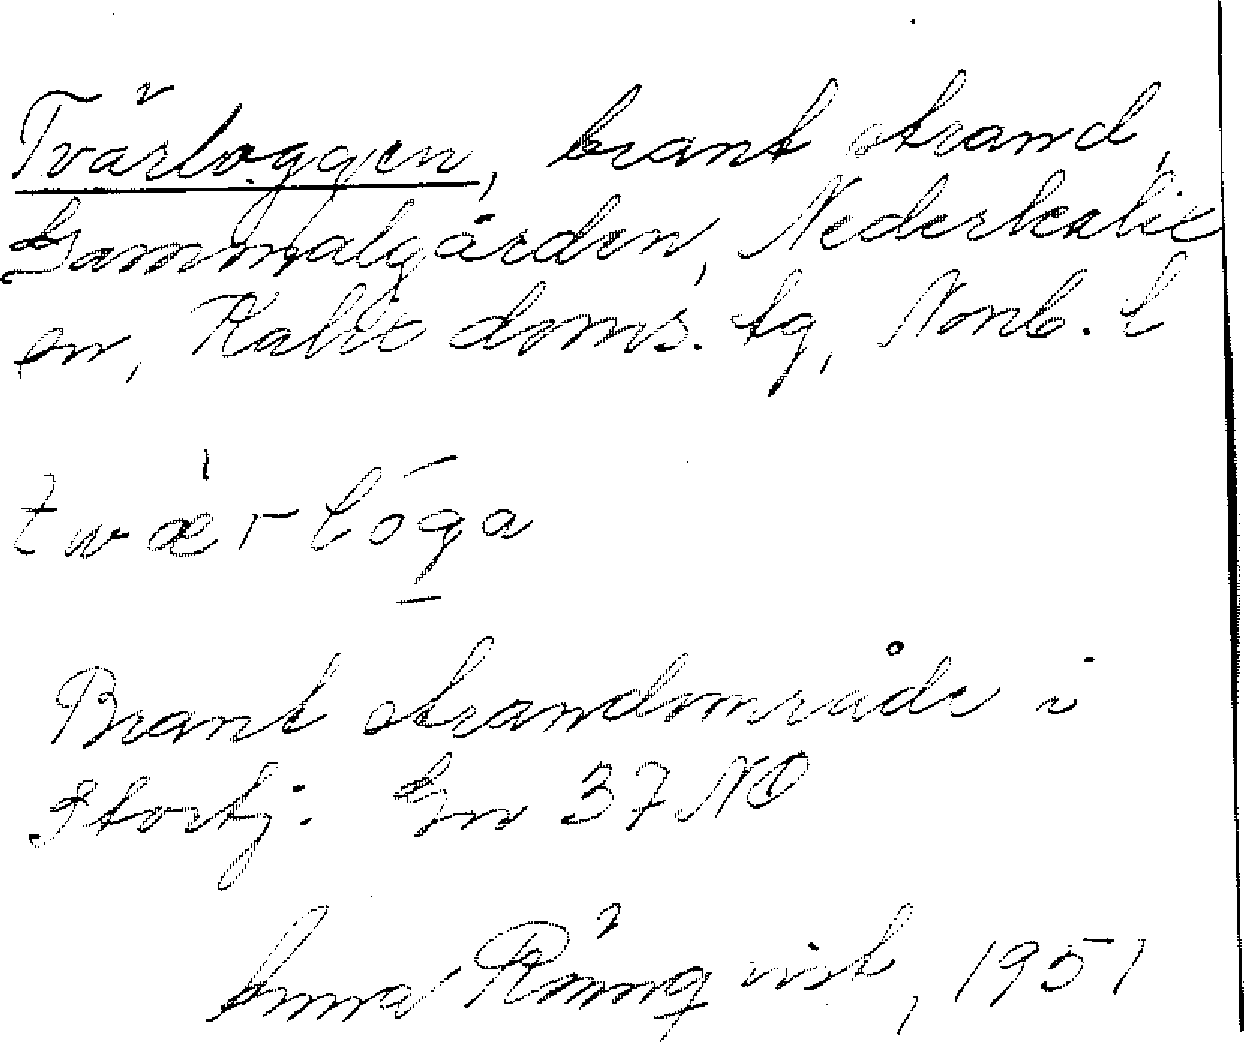 Tvärloggen, brant strand,
Gammalgården, Nederkalix
en, Kalix doms. tg, Norrb. l
tværlóga
Brant strandområde i
Stortj. Gn 37 NO
Anna Rönnqvist, 1951